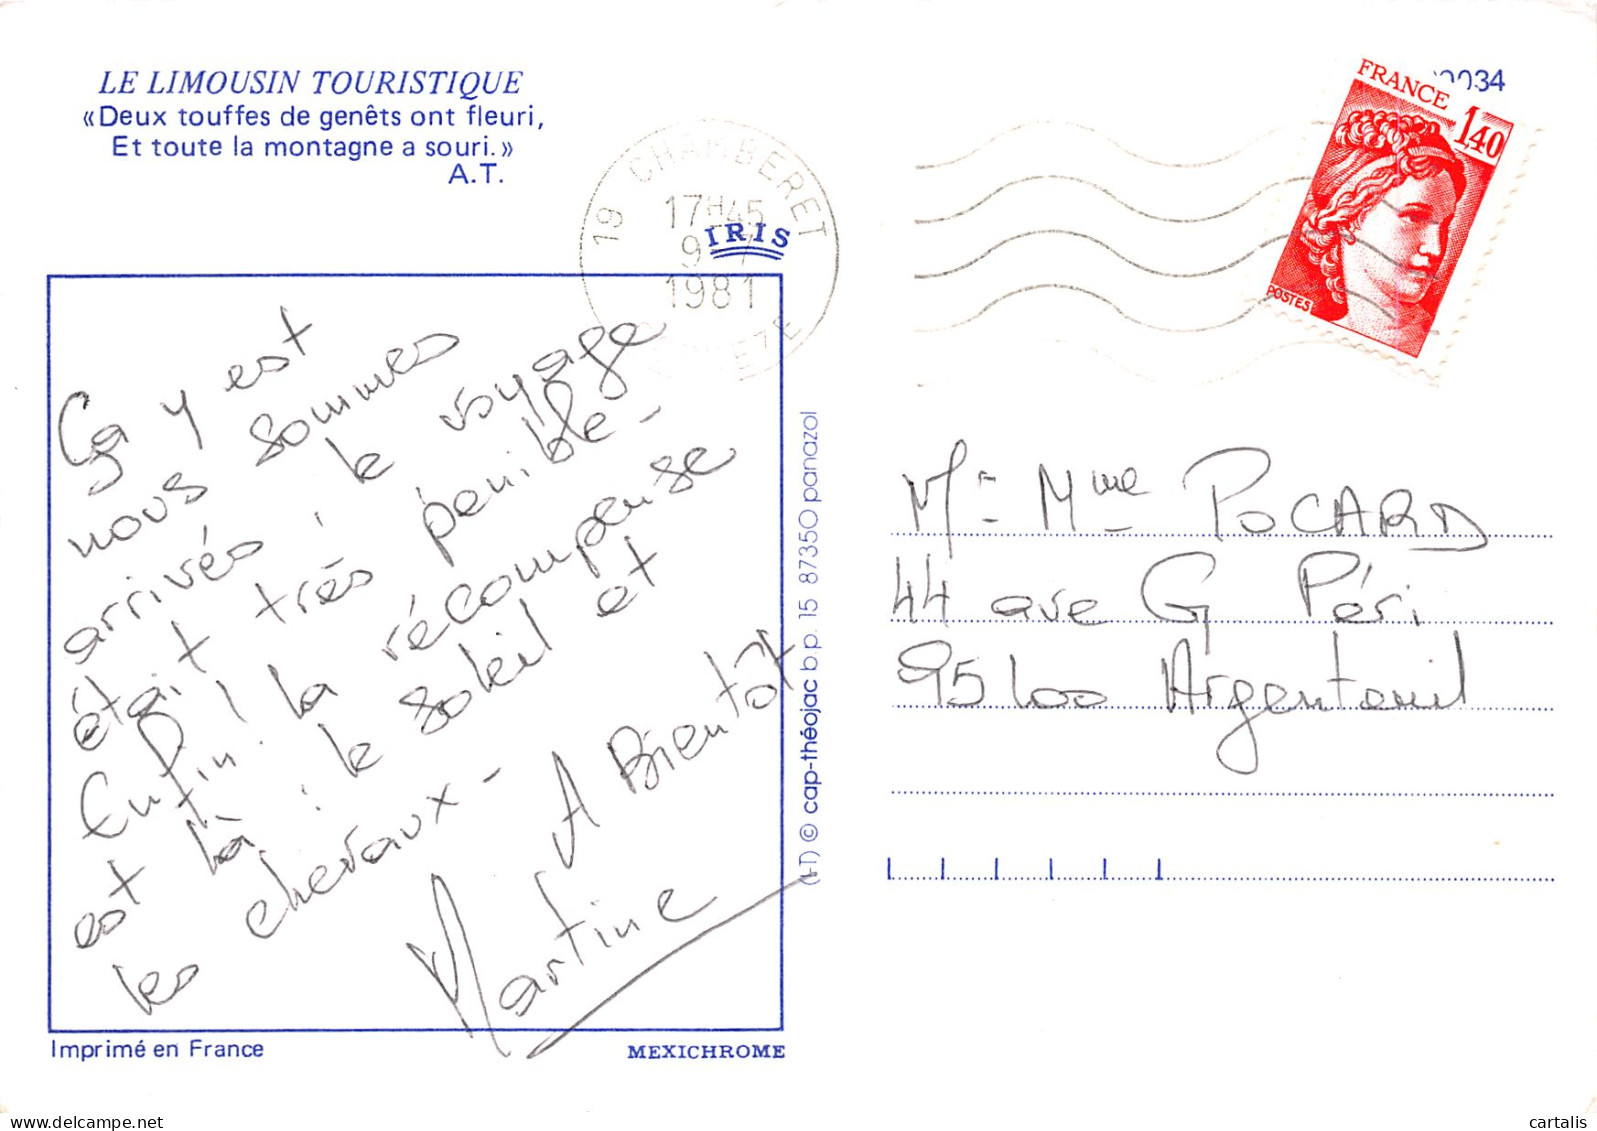 LE LIMOUSIN TOURISTIQUE
«Deux touffes de genêts ont fleuri,
Et toute la montagne a souri.»
A.T.
19 CHAMBERET
17H45
9 7
1981
IRIS
Ça y est
nous sommes
arrivés ! le voyage
était très pénible -
Enfin ! la récompense
est là : le soleil et
les chevaux -
A Bientôt
Martine
Imprimé en France
MEXICHROME
(HT) © cap-théojac b.p. 15 87350 panazol
0034
FRANCE
1,40
POSTES
Mr Mme POCARD
44 ave G Péri
95100 Argenteuil
delcampe.net
cartalis